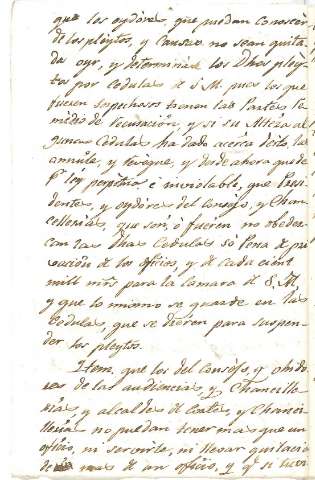 que los oydores, que puedan conoscer
de los pleytos, y causas no sean quita-
da oyr, y determinar los dhos pley-
tos por cedulas de S. M. pues los que
fueren sospechosos tienen las Partes
medio de recusacion, y si su Alteza al-
gunas cedulas ha dado acerca desto, las
annule, y revoque, y desde ahora quede
pr. ley perpetua e inviolable, que Presi-
dentes, y oydores del Consejo, y Chan-
cellerias, que son, ó fueren no obedes-
can las dhas Cedulas so Pena de pri-
vacion de los oficios, y de cada cient
mill mrs para la Camara de S. M.
y que lo mismo se guarde en las
Cedulas, que se dieren para suspen-
der los pleytos.
Item, que los del Consejo, y ohido-
res de las audiencias y Chancille-
rias, y alcaldes de Corte, y Chanci-
lleria no puedan tener mas que un
oficio, ni servirle, ni llevar quitacion
de mas de un oficio, y q. si tuvi